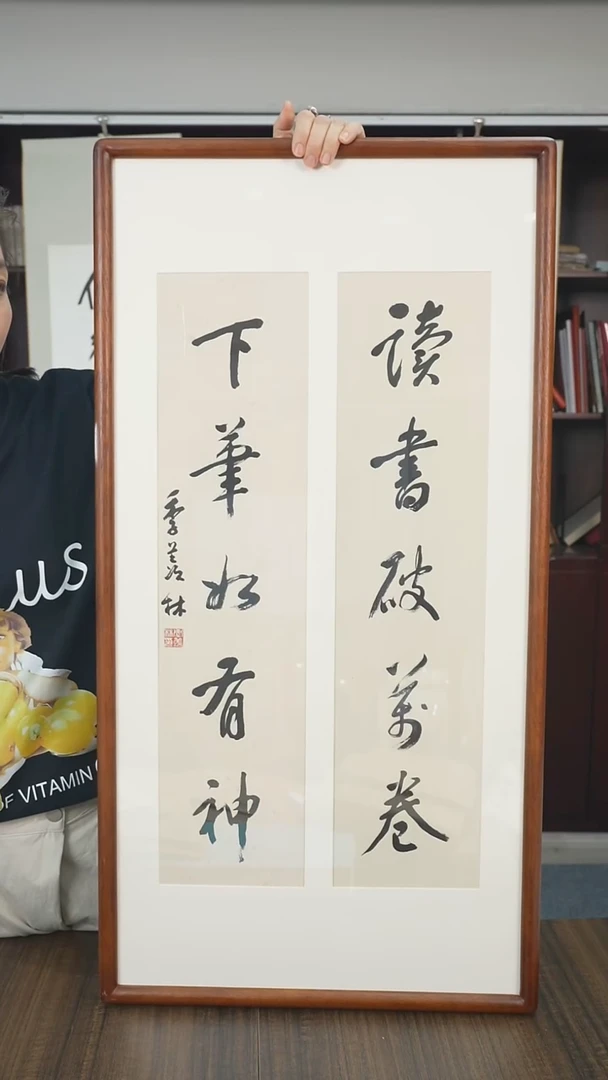 讀書破萬卷
下筆如有神
季羨林
us
OF VITAMIN